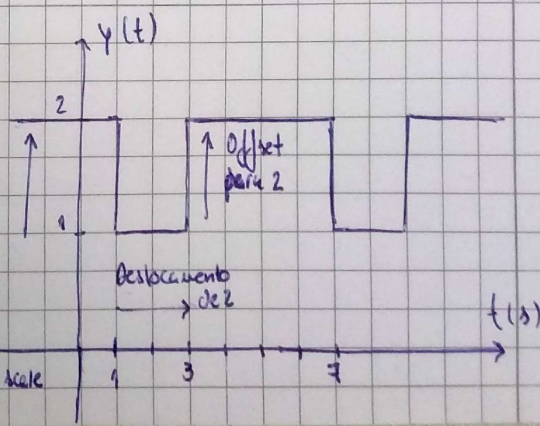 y(t)
2
Offset
para 2
1
Deslocamento
de 2
t(s)
scale
1
3
7